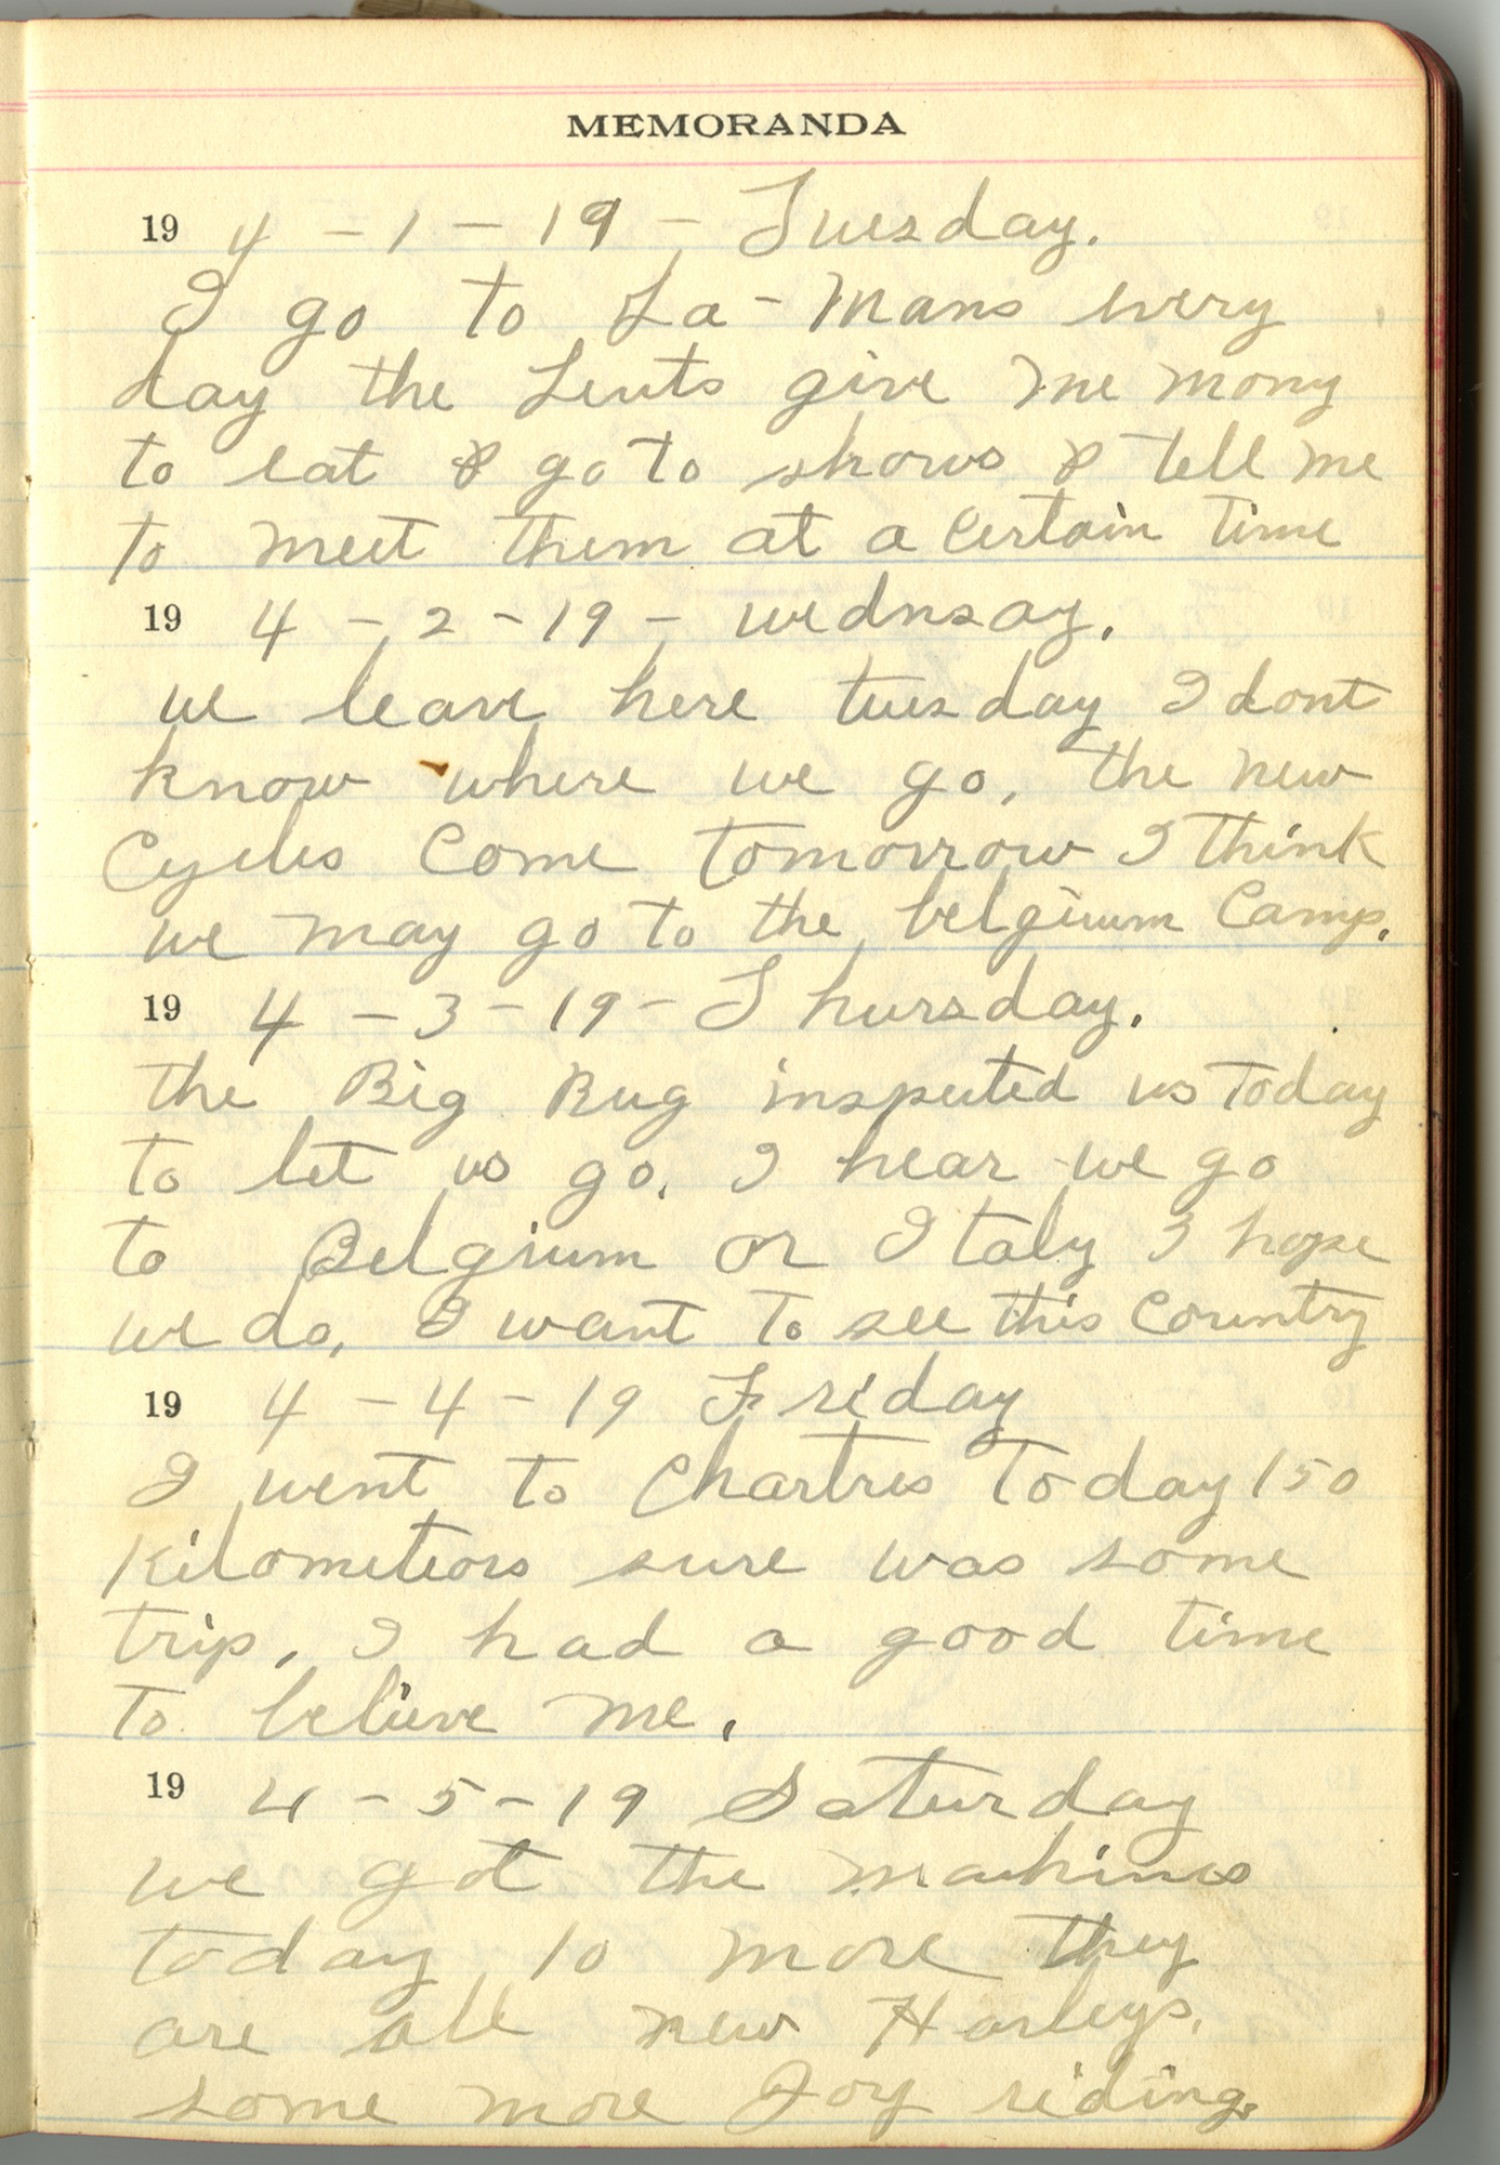 MEMORANDA
19 4 - 1 - 19 - Tuesday.
I go to La-Mans every
day the Leuts give me mony
to eat & go to shows & tell me
to meet them at a certain time
19 4 - 2 - 19 - wednsay.
we leave here tuesday I dont
know where we go, the new
Cycles Come tomorrow I think
we may go to the belgiuum Camp.
19 4 - 3 - 19 - Thursday.
the Big Bug inspected us today
to let us go. I hear we go
to Belgium or Italy I hope
we do, I want to see this Country
19 4 - 4 - 19 Friday
I went to Chartres Today 150
Kilometeors sure was some
trip, I had a good time
to believe me.
19 4 - 5 - 19 Saturday
we got the machines
today 10 more they
are all new Harleys.
some more Joy riding.